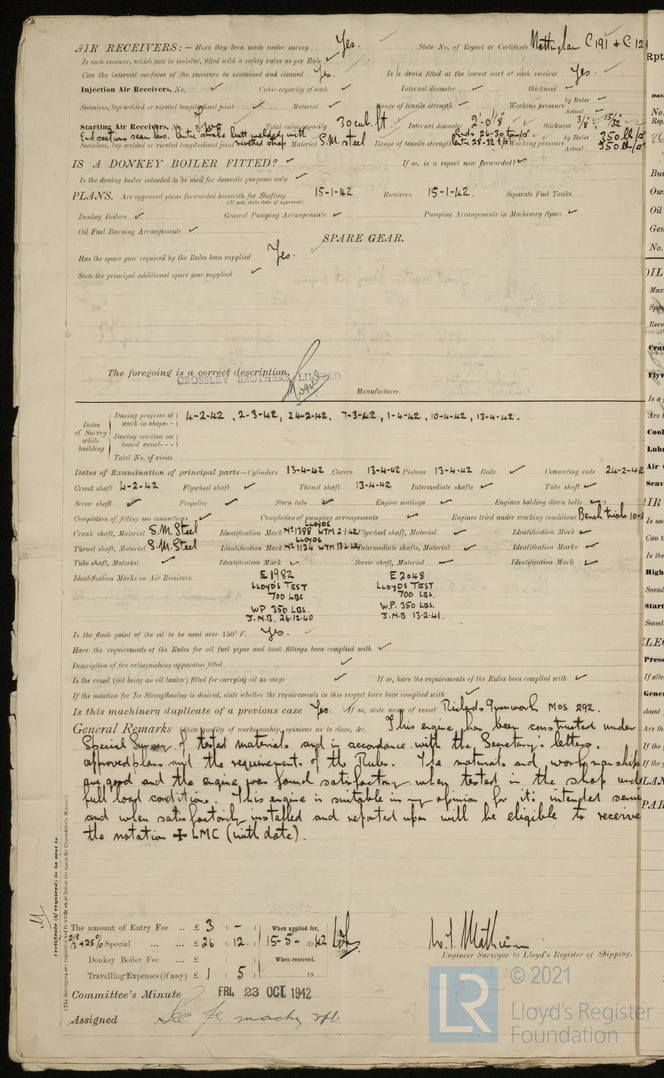 AIR RECEIVERS:— Have they been made under survey Yes. State No. of Report or Certificate Nottingham C 191 & C 121
Is each receiver, which can be isolated, fitted with a safety valve as per Rule ✓
Can the internal surfaces of the receivers be examined and cleaned Yes. Is a drain fitted at the lowest part of each receiver Yes.
Injection Air Receivers, No. ✓ Cubic capacity of each ✓ Internal diameter ✓ thickness ✓
Seamless, lap welded or riveted longitudinal joint ✓ Material ✓ Range of tensile strength ✓ Working pressure by Rules ✓ Actual
Starting Air Receivers, No. Total cubic capacity 30 cub. ft. Internal diameter 2'-0⅛" thickness
Seamless, lap welded or riveted longitudinal joint riveted shop Material S.M. steel Range of tensile strength Working pressure by Rules 350 lb/□" Actual 350 lb/□"
IS A DONKEY BOILER FITTED? ✓ If so, is a report now forwarded? ✓
Is the donkey boiler intended to be used for domestic purposes only ✓
PLANS. Are approved plans forwarded herewith for Shafting 15-1-42 Receivers 15-1-42. Separate Fuel Tanks
(If not, state date of approval)
Donkey Boilers ✓ General Pumping Arrangements ✓ Pumping Arrangements in Machinery Space ✓
Oil Fuel Burning Arrangements ✓
SPARE GEAR.
Has the spare gear required by the Rules been supplied Yes.
State the principal additional spare gear supplied ✓
The foregoing is a correct description,
CROSSLEY BROTHERS LIMITED
Manufacturer.
Dates of Survey while building
During progress of work in shops-- 4-2-42, 2-3-42, 24-2-42, 7-3-42, 1-4-42, 10-4-42, 13-4-42.
During erection on board vessel---
Total No. of visits
Dates of Examination of principal parts—Cylinders 13-4-42 Covers 13-4-42 Pistons 13-4-42 Rods ✓ Connecting rods 24-2-42
Crank shaft 4-2-42 Flywheel shaft ✓ Thrust shaft 13-4-42 Intermediate shafts ✓ Tube shaft ✓
Screw shaft ✓ Propeller ✓ Stern tube ✓ Engine seatings ✓ Engines holding down bolts ✓
Completion of fitting sea connections ✓ Completion of pumping arrangements ✓ Engines tried under working conditions Bench trials
Crank shaft, Material S.M. Steel Identification Mark LLOYDS No 1388 WTM 2-1-42 Flywheel shaft, Material ✓ Identification Mark ✓
Thrust shaft, Material S.M. Steel Identification Mark LLOYDS No 1134 WTM 13-4-42 Intermediate shafts, Material ✓ Identification Marks ✓
Tube shaft, Material ✓ Identification Mark ✓ Screw shaft, Material ✓ Identification Mark ✓
Identification Marks on Air Receivers E 1982 E 2048
LLOYD'S TEST LLOYD'S TEST
700 LBS 700 LBS.
W.P. 350 LBS. W.P. 350 LBS.
J.N.B. 26-12-40 J.N.B 13-2-41.
Is the flash point of the oil to be used over 150° F. Yes.
Have the requirements of the Rules for oil fuel pipes and tank fittings been complied with ✓
Description of fire extinguishing apparatus fitted ✓
Is the vessel (not being an oil tanker) fitted for carrying oil as cargo ✓ If so, have the requirements of the Rules been complied with ✓
If the notation for Ice Strengthening is desired, state whether the requirements in this respect have been complied with ✓
Is this machinery duplicate of a previous case Yes. If so, state name of vessel Richds Ironwork MOS 292.
General Remarks (State quality of workmanship, opinions as to class, &c. This engine has been constructed under
Special Survey of tested materials and in accordance with the Secretary's letters,
approved plans and the requirements of the Rules. The materials and workmanship
are good and the engine was found satisfactory when tested in the shop under
full load conditions. This engine is suitable in my opinion for its intended service
and when satisfactorily installed and reported upon will be eligible to receive
the notation ✠ LMC (with date).
Certificate (if required) to be sent to
(The Surveyors are requested not to write on or below the space for Committee's Minute.)
The amount of Entry Fee .. £ 3 : - : When applied for,
Special ... ... £ 26 : 12 : 15-5- 1942
Donkey Boiler Fee ... £ : : When received,
Travelling Expenses (if any) £ 1 : 5 : 19
Engineer Surveyor to Lloyd's Register of Shipping.
Committee's Minute FRI. 23 OCT 1942
Assigned See Fe machy rpt.
LR © 2021
Lloyd's Register
Foundation